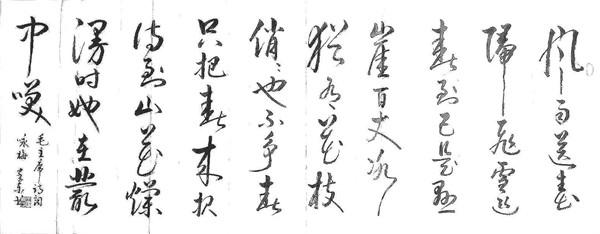 风雨送春
归飞雪迎
春到已是悬
崖百丈冰
犹有花枝
俏〻也不争春
只把春来报
待到山花爛
漫时她在叢
中咲
毛主席诗词
咏梅